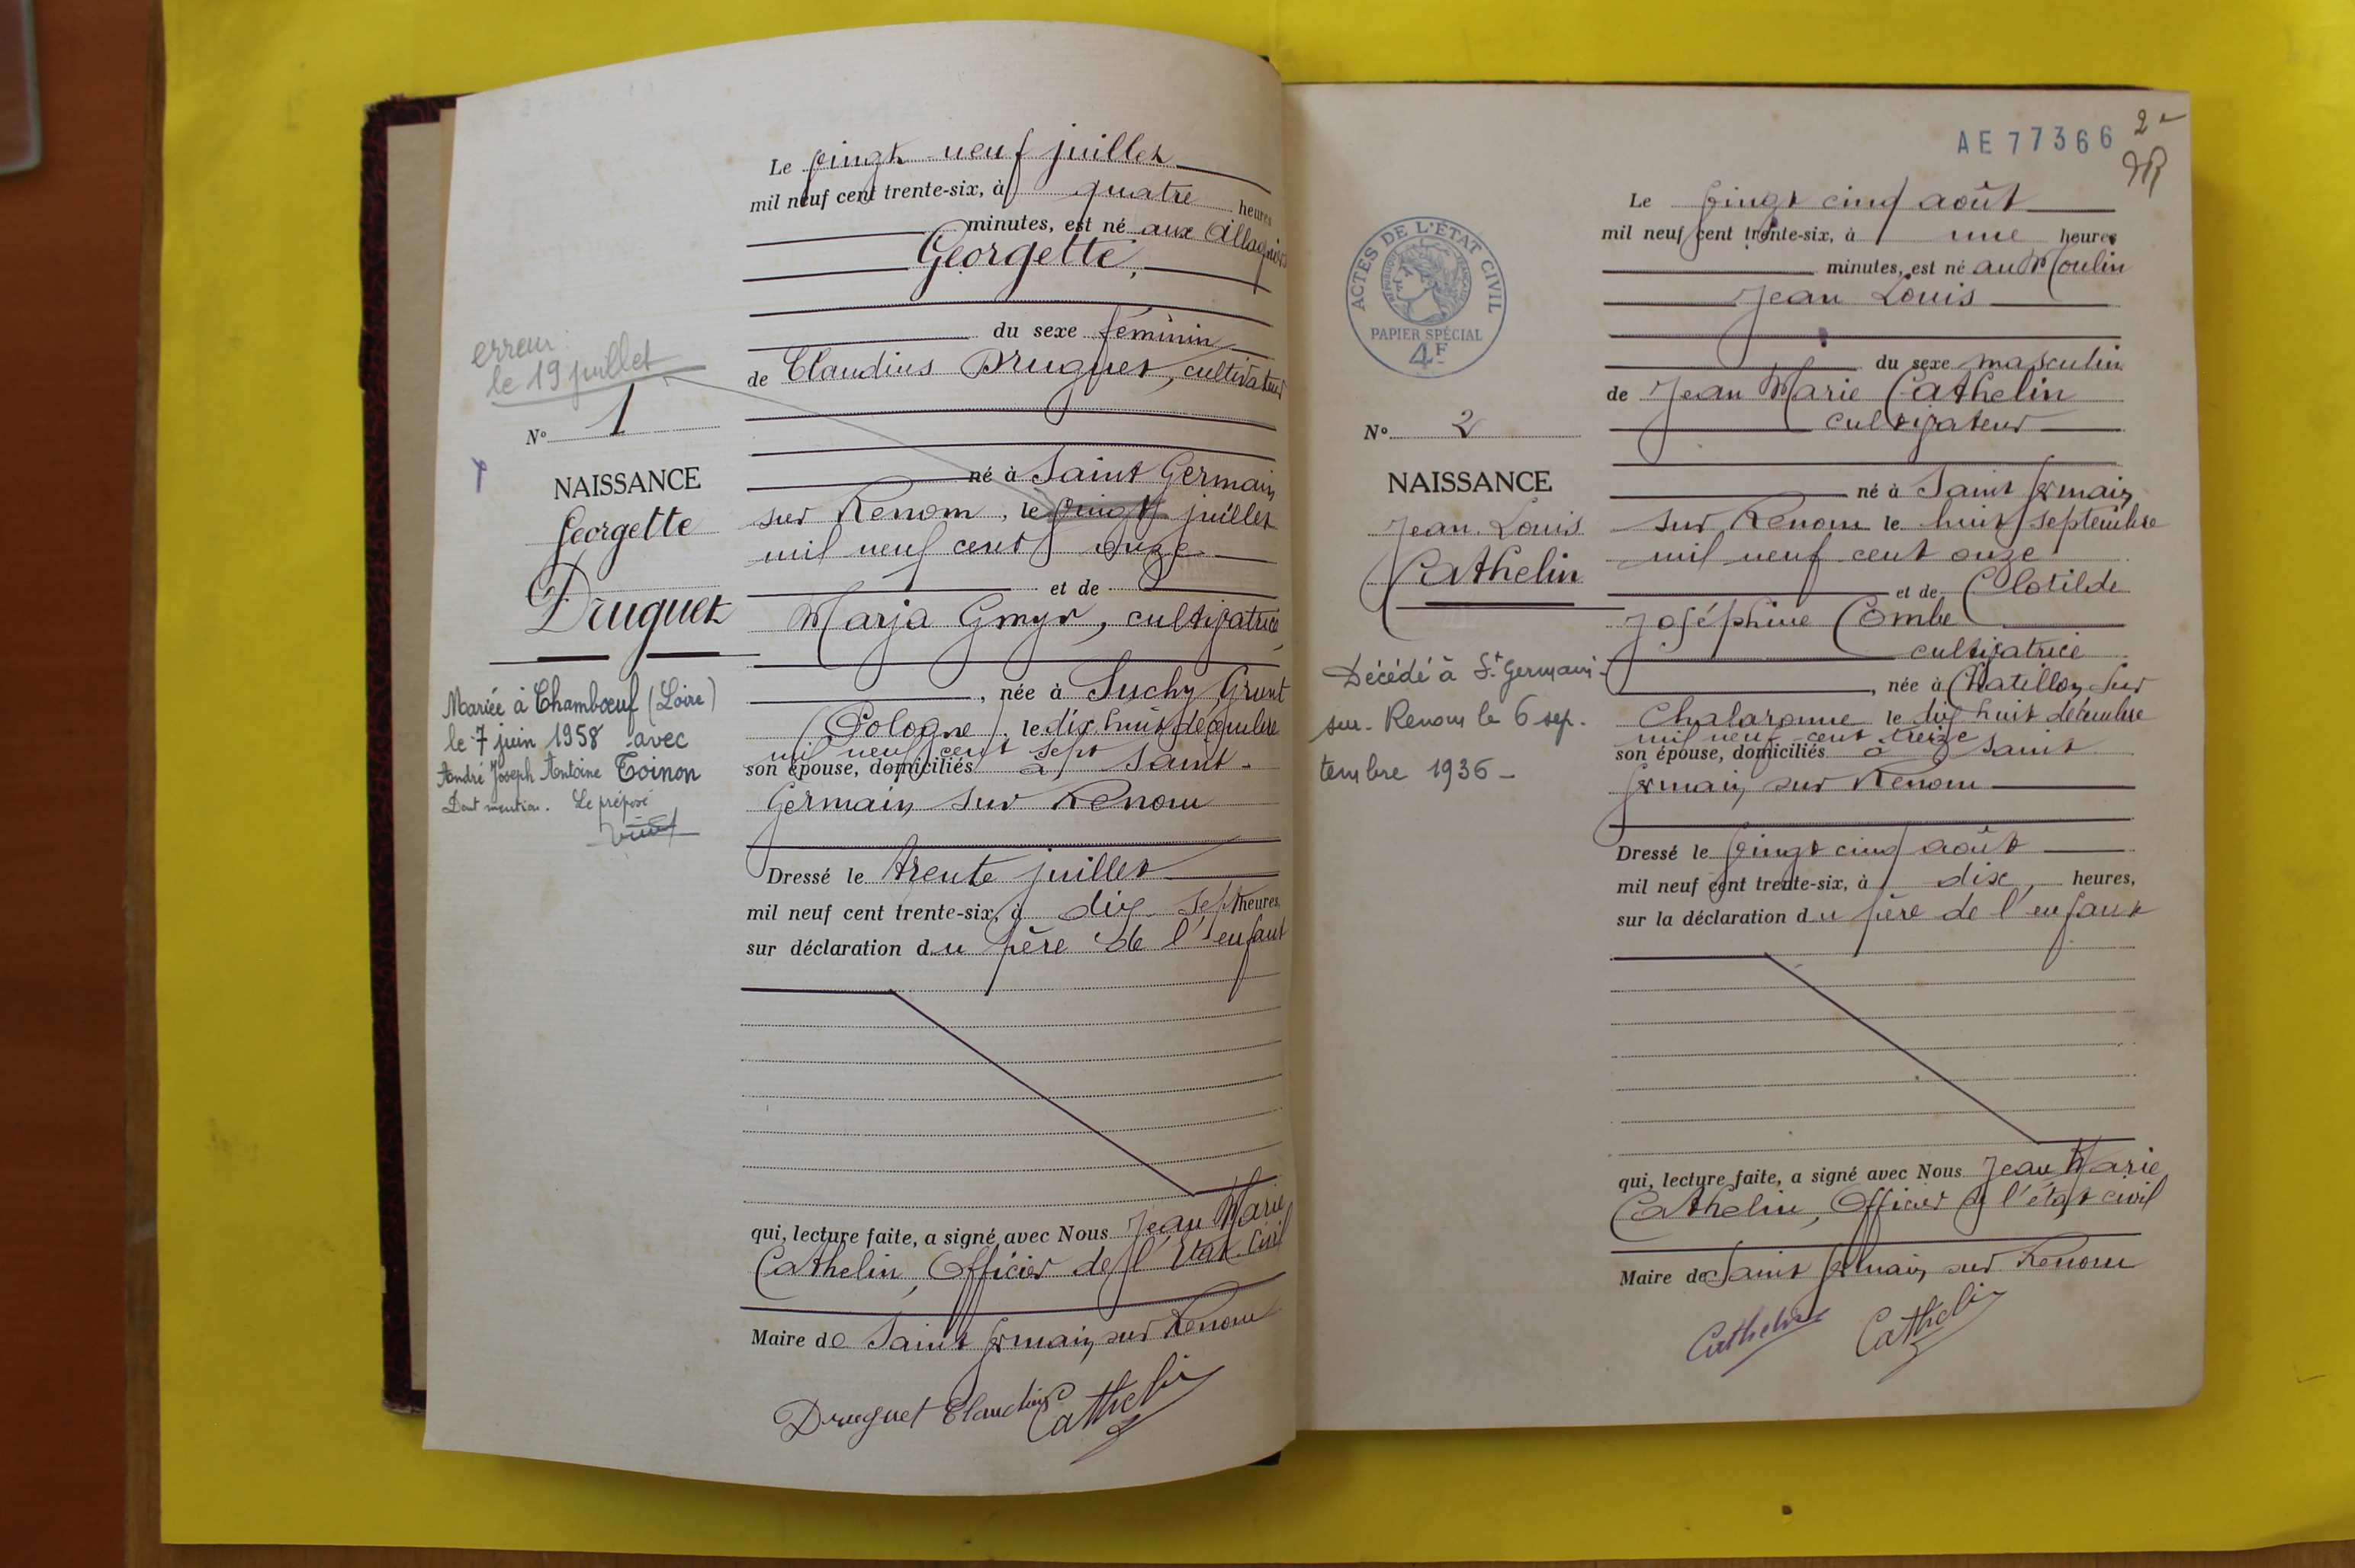 Le vingt neuf juillet
mil neuf cent trente-six, à quatre heures
minutes, est né aux Allagniers
Georgette,
du sexe féminin
de Claudius Druguet, cultivateur
erreur
le 19 juillet
N° 1
NAISSANCE
Georgette
Druguet
né à Saint Germain
sur Renom, le vingt juillet
mil neuf cent onze
et de
Marja Gmyr, cultivatrice,
, née à Suchy Grunt
(Pologne), le dix huit décembre
mil neuf cent sept
son épouse, domiciliés à Saint-
Germain sur Renom
Mariée à Chambœuf (Loire)
le 7 juin 1958 avec
André Joseph Antoine Toinon
Dont mention. Le préposé
Dressé le trente juillet
mil neuf cent trente-six, à dix sept heures,
sur déclaration du père de l'enfant
qui, lecture faite, a signé avec Nous Jean Marie
Cathelin, Officier de l'Etat Civil
Maire de Saint Germain sur Renom
Druguet Claudius Cathelin
AE 77366
2
ACTES DE L'ÉTAT CIVIL
RÉPUBLIQUE FRANÇAISE
PAPIER SPÉCIAL
4F
Le vingt cinq août
mil neuf cent trente-six, à une heures
minutes, est né au Moulin
Jean Louis
du sexe masculin
de Jean Marie Cathelin
cultivateur
N° 2
NAISSANCE
Jean Louis
Cathelin
né à Saint Germain
sur Renom le huit septembre
mil neuf cent onze
et de Clotilde
Joséphine Combe
cultivatrice
, née à Chatillon sur
Chalaronne le dix huit décembre
mil neuf cent treize
son épouse, domiciliés à Saint
Germain sur Renom
Décédé à St Germain-
sur-Renom le 6 sep-
tembre 1936 -
Dressé le vingt cinq août
mil neuf cent trente-six, à dix heures,
sur la déclaration du père de l'enfant
qui, lecture faite, a signé avec Nous Jean Marie
Cathelin, Officier de l'état civil
Maire de Saint Germain sur Renom
Cathelin Cathelin